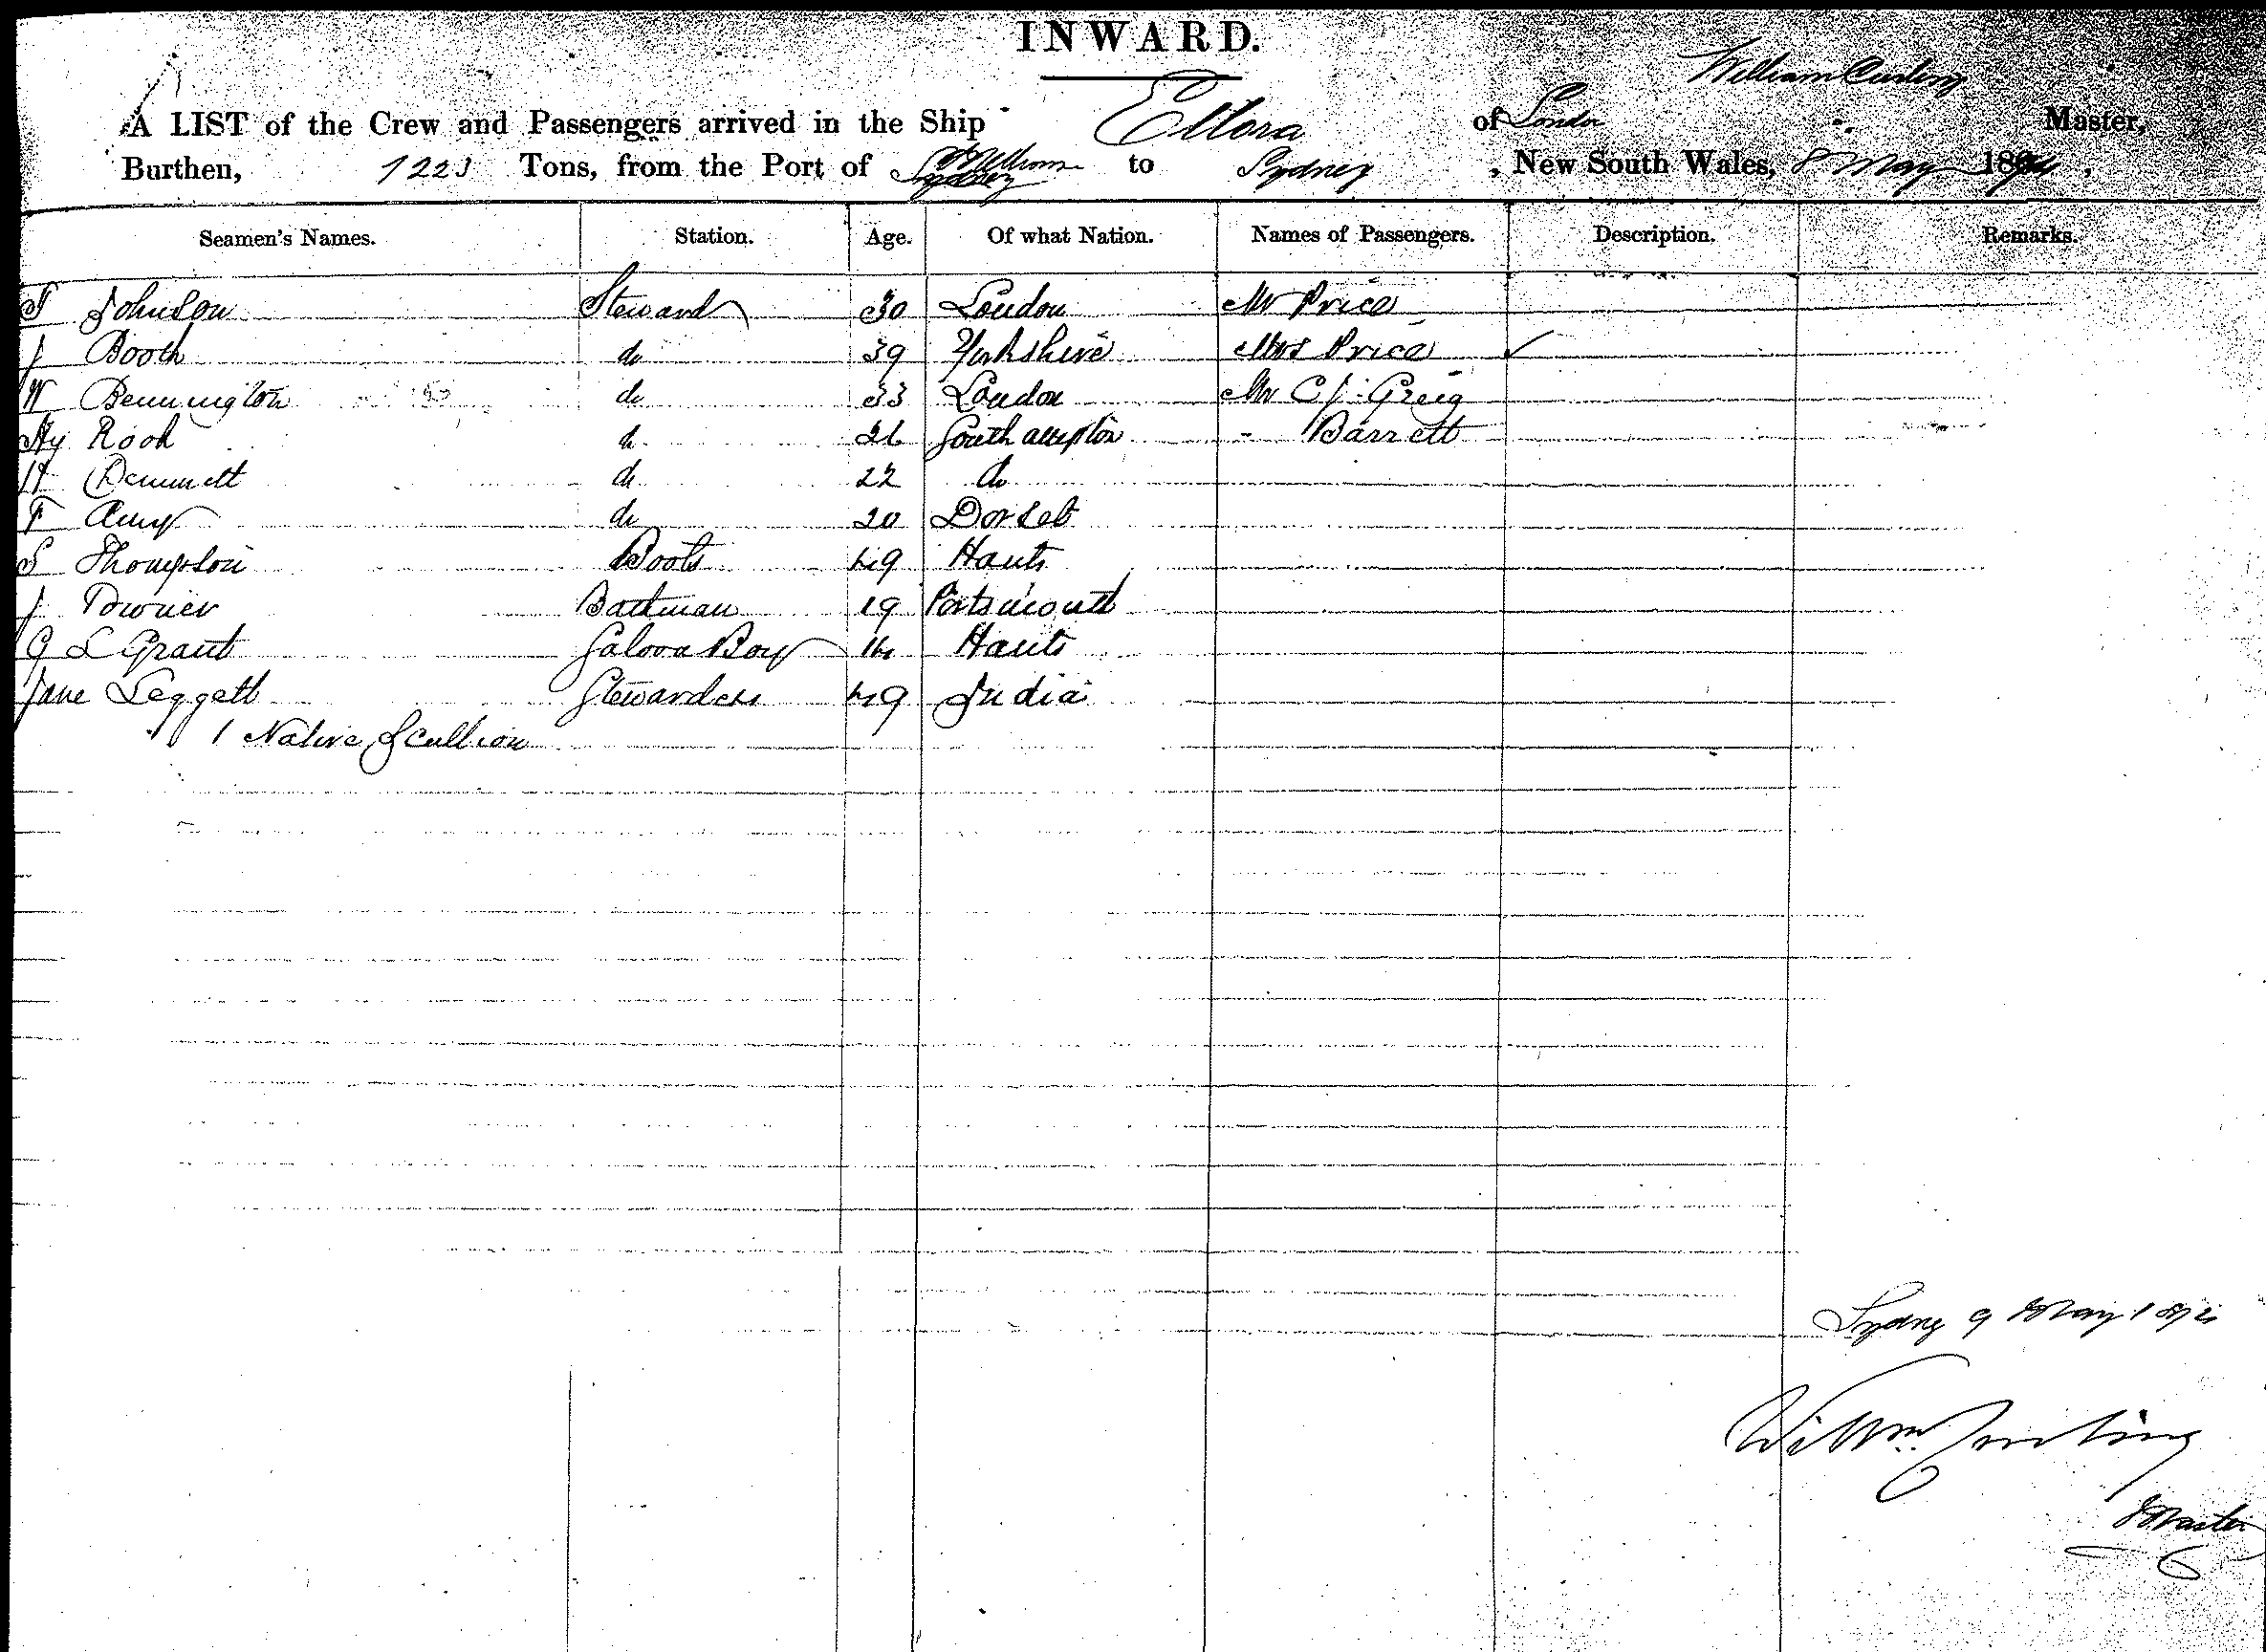 INWARD.
William Curling
A LIST of the Crew and Passengers arrived in the Ship Ellora of London Master,
Burthen, 1223 Tons, from the Port of to Sydney, New South Wales, 8 May 1874,
Seamen's Names. Station. Age. Of what Nation. Names of Passengers. Description. Remarks.
Johnson Steward 30 London Mr Price
J Booth do 39 Yorkshire Mrs Price ✓
W Bennington do 33 London Mr C J Greig
Hy Rook do 26 Southampton - Barrett
H Bennett do 22 do
F Amy do 20 Dorset
S Thompson Boots 49 Hants
J Downer Bathman 19 Portsmouth
G L Grant Saloon Boy 16 Hants
Jane Leggett Stewardess 49 India
1 Native Scullion
Sydney 9 May 1874
Willm Curling
Master